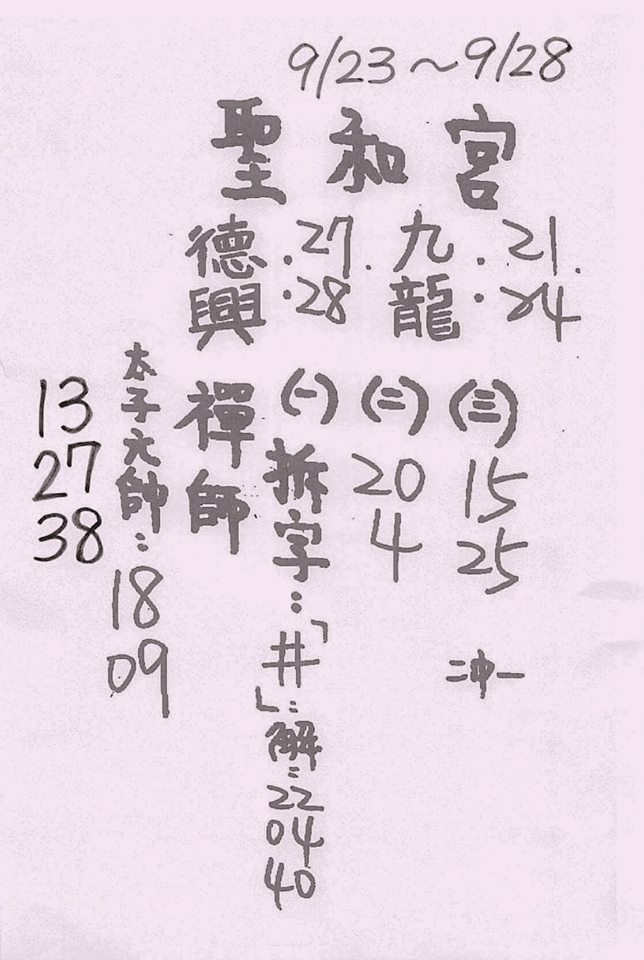 9/23～9/28
聖和宮
德興．27．28．
九龍．21．24
禪師
(一)拆字：「井」：解：22 04 40
(二) 20 4
(三) 15 25
二沖一
太子元帥：18 09
13
27
38